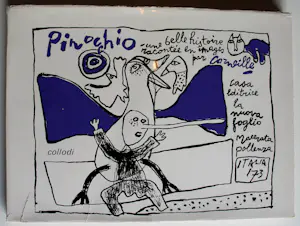 Pinochio
-une belle histoire
racontée en images
par Corneille
casa
editrice
la
nuova
foglio
Macerata
pollenza
ITALIA
73
collodi